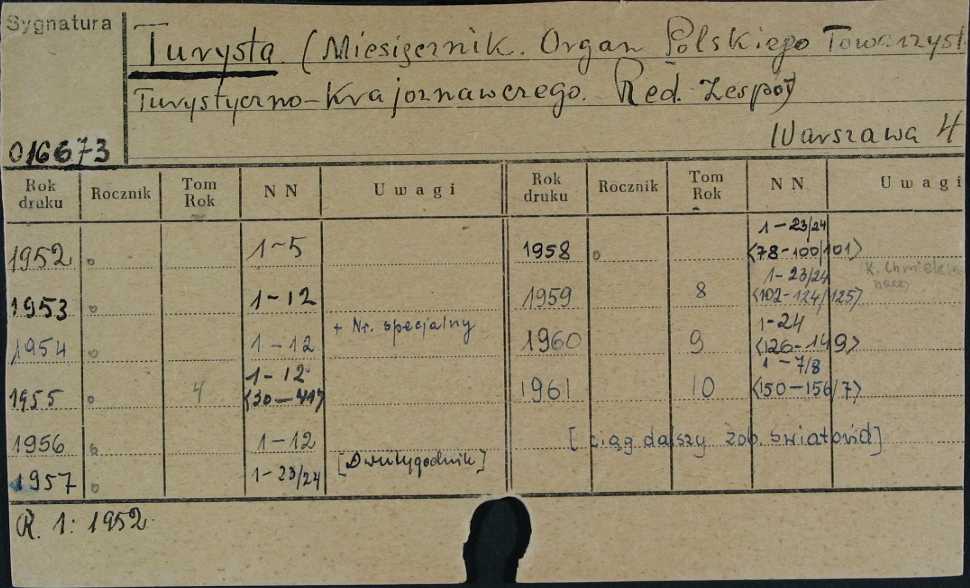 Sygnatura
Turysta (Miesięcznik. Organ Polskiego Towarzyst
Turystyczno-Krajoznawczego. Red. Zespół)
Warszawa 4
016673
Rok druku Rocznik Tom Rok NN Uwagi Rok druku Rocznik Tom Rok NN Uwagi
1952 1-5
1953 1-12
1954 1-12 + Nr. specjalny
1955 4 1-12 <30-41>
1956 1-12
1957 1-23/24 [Dwutygodnik]
1958 1-23/24 <78-100/101>
1959 8 1-23/24 <102-124/125>
1960 9 1-24 <126-149>
1961 10 1-7/8 <150-156/7>
[ciąg dalszy zob. Światowid]
R. 1: 1952